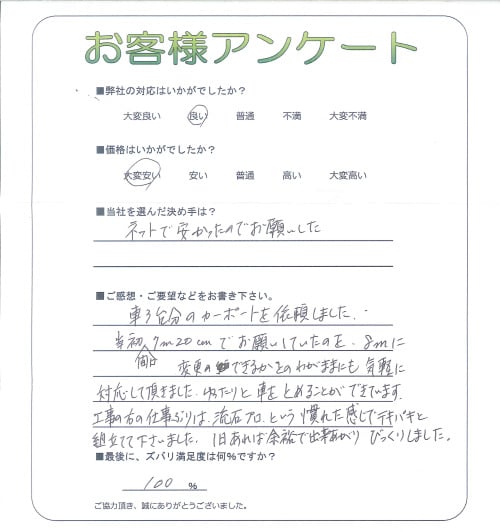 お客様アンケート
■弊社の対応はいかがでしたか?
大変良い 良い 普通 不満 大変不満
■価格はいかがでしたか?
大変安い 安い 普通 高い 大変高い
■当社を選んだ決め手は?
ネットで安かったのでお願いした
■ご感想・ご要望などをお書き下さい。
車3台分のカーポートを依頼しました。
当初、7m20cmでお願いしていたのを、8mに
間口
変更 できるかとのわがままにも 気軽に
対応して頂きました。ゆったりと車をとめることができています。
工事の方の仕事ぶりは、流石プロという慣れた感じでテキパキと
組立てて下さいました。1日あれば余裕で出来あがり びっくりしました。
■最後に、ズバリ満足度は何%ですか?
100 %
ご協力頂き、誠にありがとうございました。